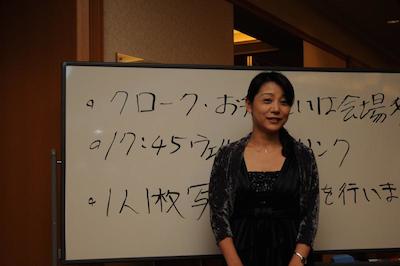 。クローク・お いは会場
。17:45 ウェル ンク
。1人1枚写 を行いま